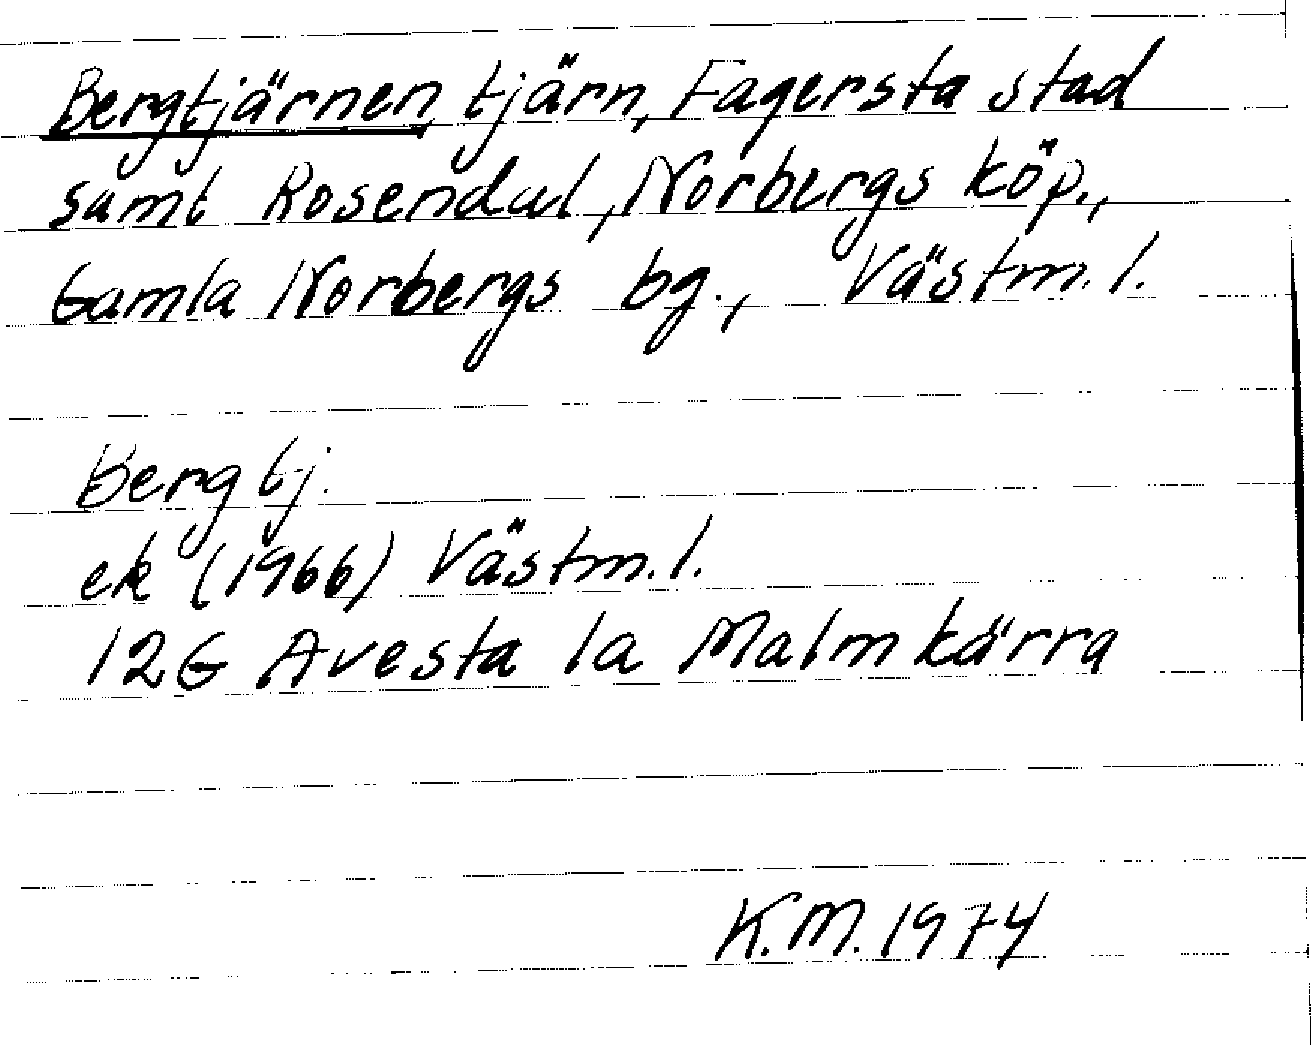 Bergtjärnen, tjärn, Fagersta stad
samt Rosendal, Norbergs köp.,
Gamla Norbergs bg., Västm.l.
Bergtj.
ek (1966) Västm.l.
12G Avesta 1a Malmkärra
K.M. 1974